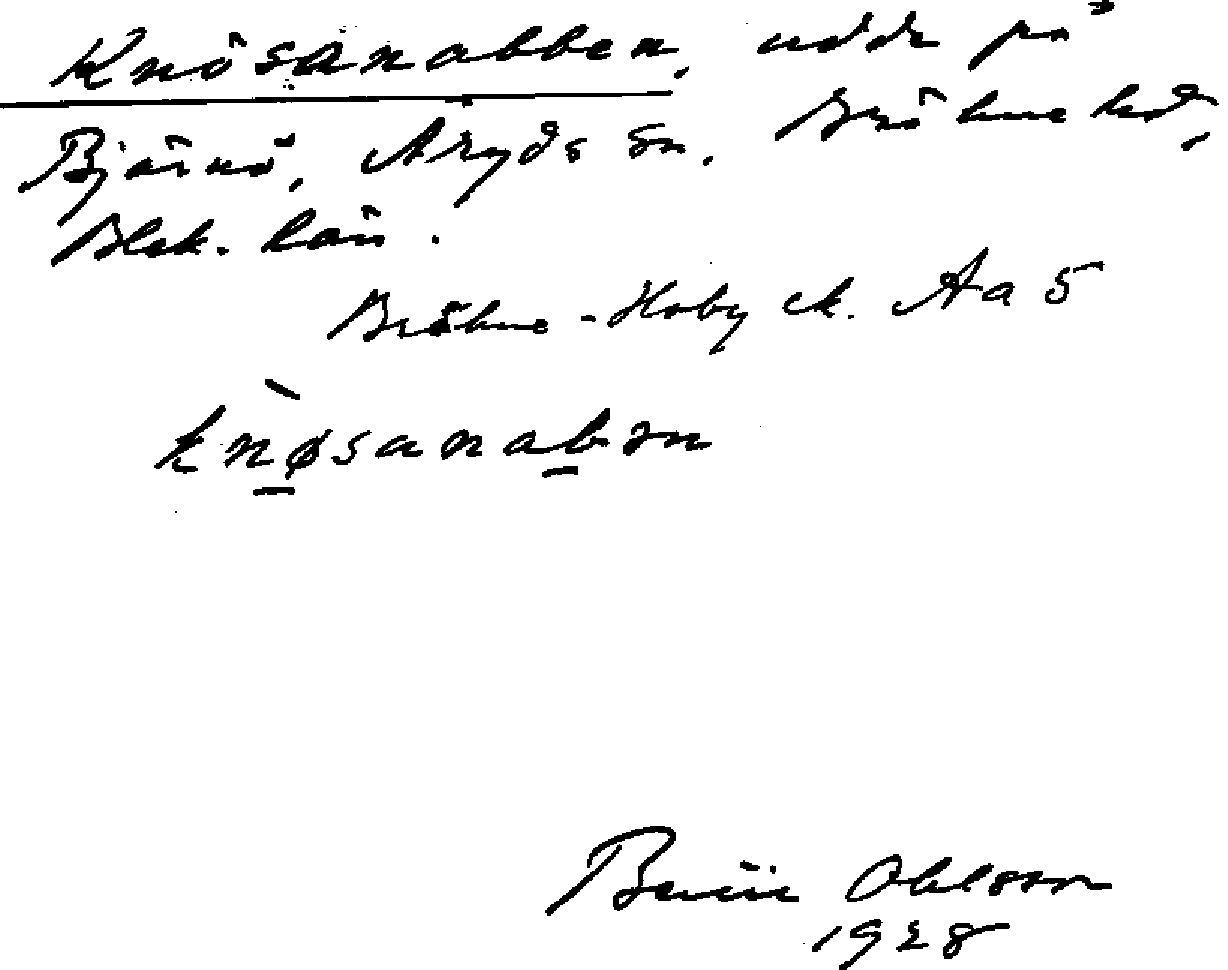 Knösanabben, udde på
Bjärnö, Åryds sn. Bräkne hd,
Blek. län.
Bräkne-Hoby ek. Aa 5
knøsanabən
Ohlsson
1928